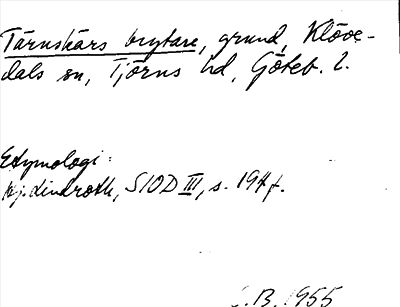 Tärnskärs brytare, grund, Klöve-
dals sn, Tjörns hd, Göteb. l.
Etymologi:
Hj. Lindroth, SIOD III, s. 194 f.
B. 1955